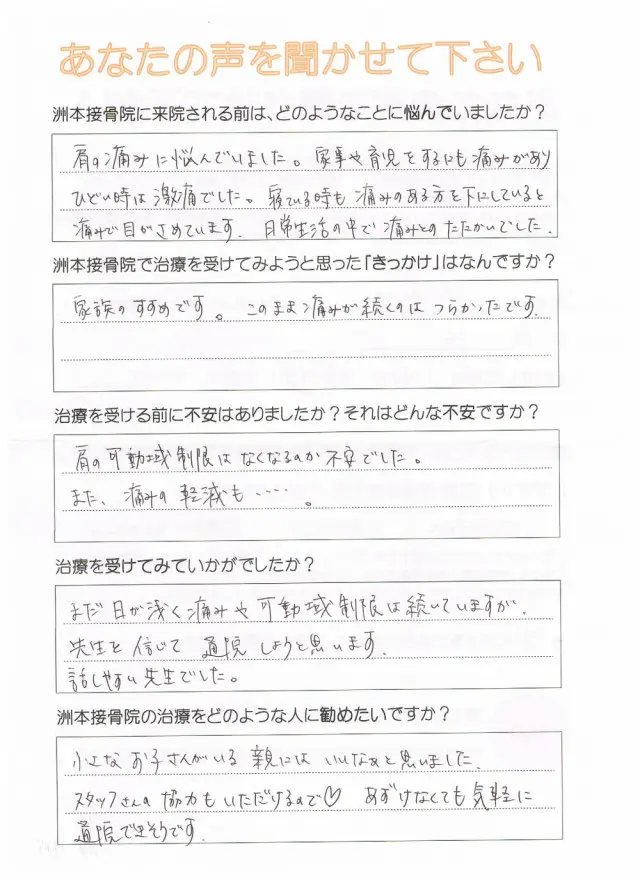 あなたの声を聞かせて下さい
洲本接骨院に来院される前は、どのようなことに悩んでいましたか？
肩の痛みに悩んでいました。家事や育児をするにも痛みがあり
ひどい時は激痛でした。寝ている時も痛みのある方を下にしていると
痛みで目がさめています. 日常生活の中で痛みとのたたかいでした.
洲本接骨院で治療を受けてみようと思った「きっかけ」はなんですか？
家族のすすめです。このまま痛みが続くのはつらかったです.
治療を受ける前に不安はありましたか？それはどんな不安ですか？
肩の可動域制限はなくなるのか不安でした。
また、痛みの軽減も……。
治療を受けてみていかがでしたか？
まだ日が浅く痛みや可動域制限は続いていますが.
先生を信じて通院しようと思います.
話しやすい先生でした。
洲本接骨院の治療をどのような人に勧めたいですか？
小さなお子さんがいる親にはいいなぁと思いました.
スタッフさんの協力もいただけるので♡ あずけなくても気軽に
通院できそうです.